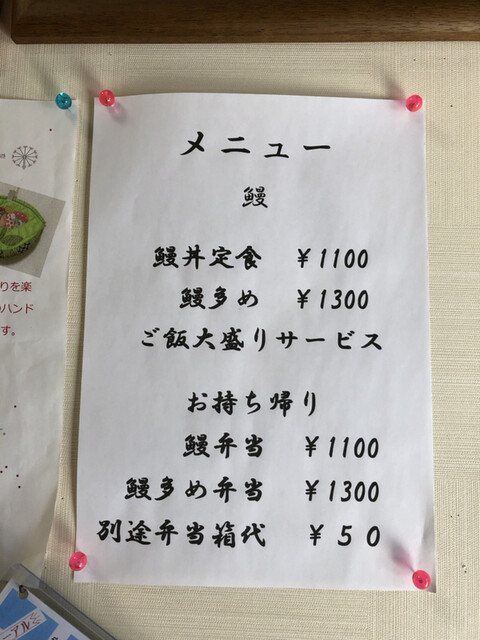 メニュー
鰻
鰻丼定食 ￥1100
鰻多め ￥1300
ご飯大盛りサービス
お持ち帰り
鰻弁当 ￥1100
鰻多め弁当 ￥1300
別途弁当箱代 ￥50
りを楽
ハンド
す。